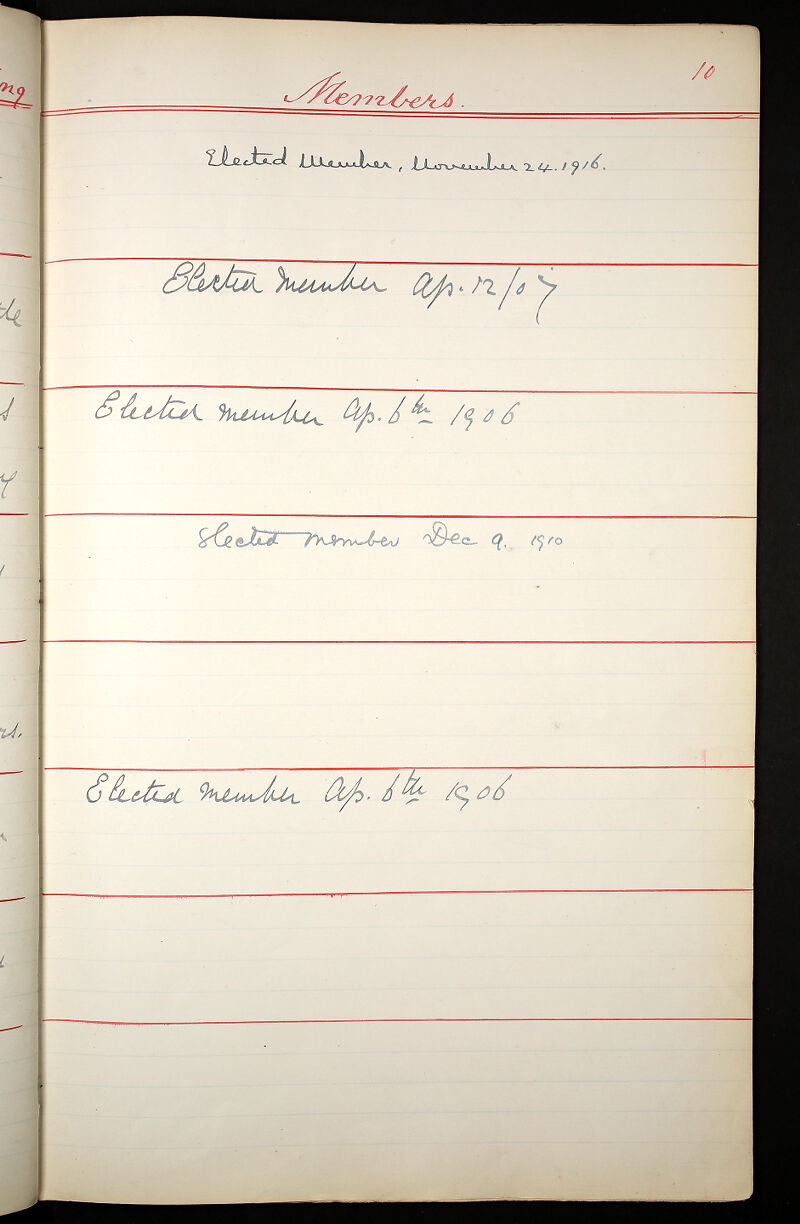 10
Members.
Elected Member, November 24. 1916.
Elected Member Ap. 12/07
Elected member Ap. 6th 1906
Elected member Dec 9. 1910
Elected member Ap. 6th 1906